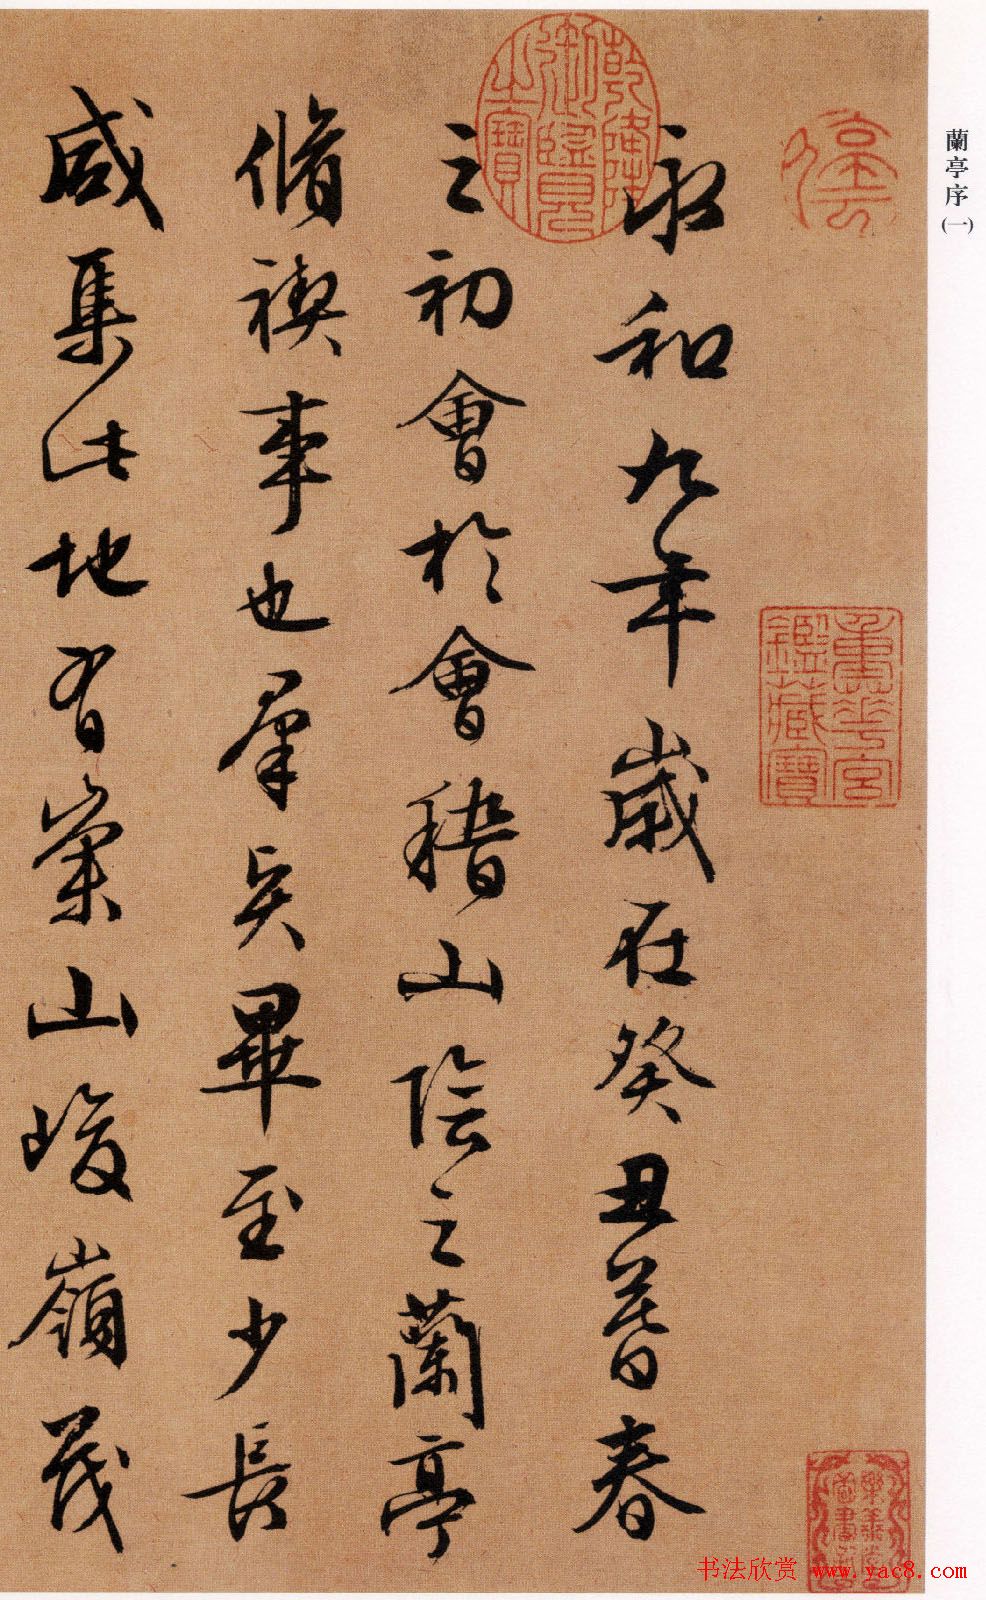 蘭亭序
(一)
乾隆御覽之寶
重華宮鑑藏寶
樂善堂圖書記
永和九年歲在癸丑暮春
之初會於會稽山陰之蘭亭
脩禊事也羣賢畢至少長
咸集此地有崇山峻嶺茂
书法欣赏 www.yac8.com